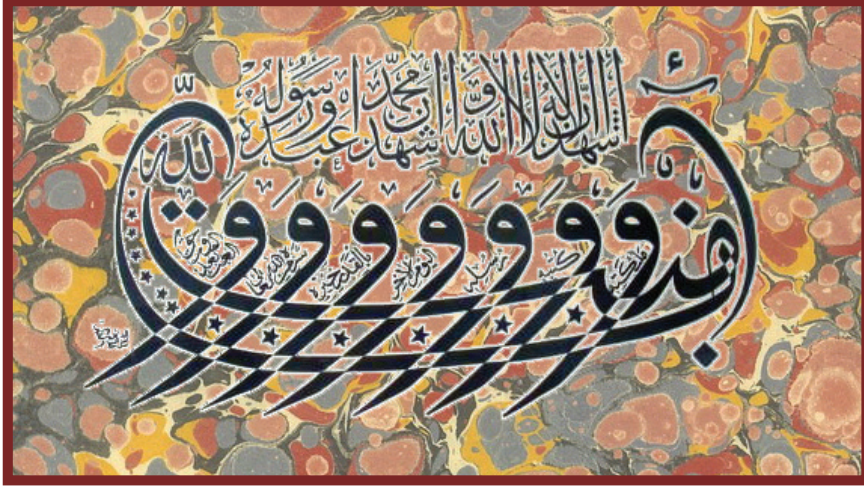 اشهد ان لا اله الا الله و اشهد ان محمدا عبده ورسوله
آمنت بالله وملائكته وكتبه ورسله واليوم الاخر وبالقدر خيره وشره من الله تعالى والبعث بعد الموت حق